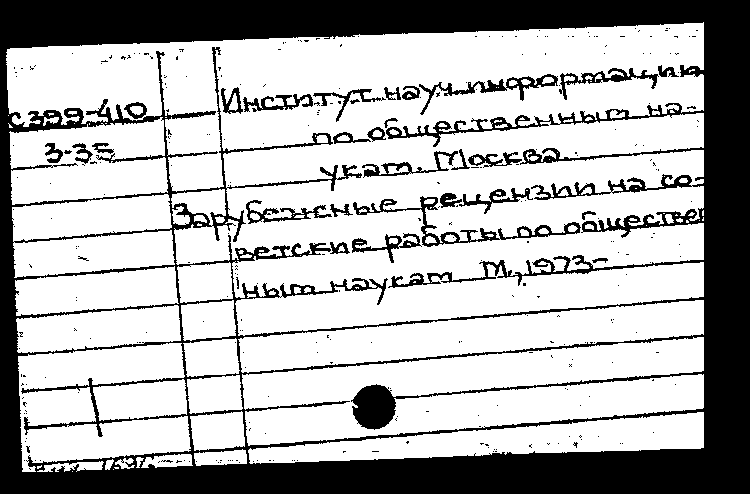 С399-410
3-35
Институт науч. информации
по общественным на-
укам. Москва.
Зарубежные рецензии на со-
ветские работы по обществен
ным наукам М., 1973-